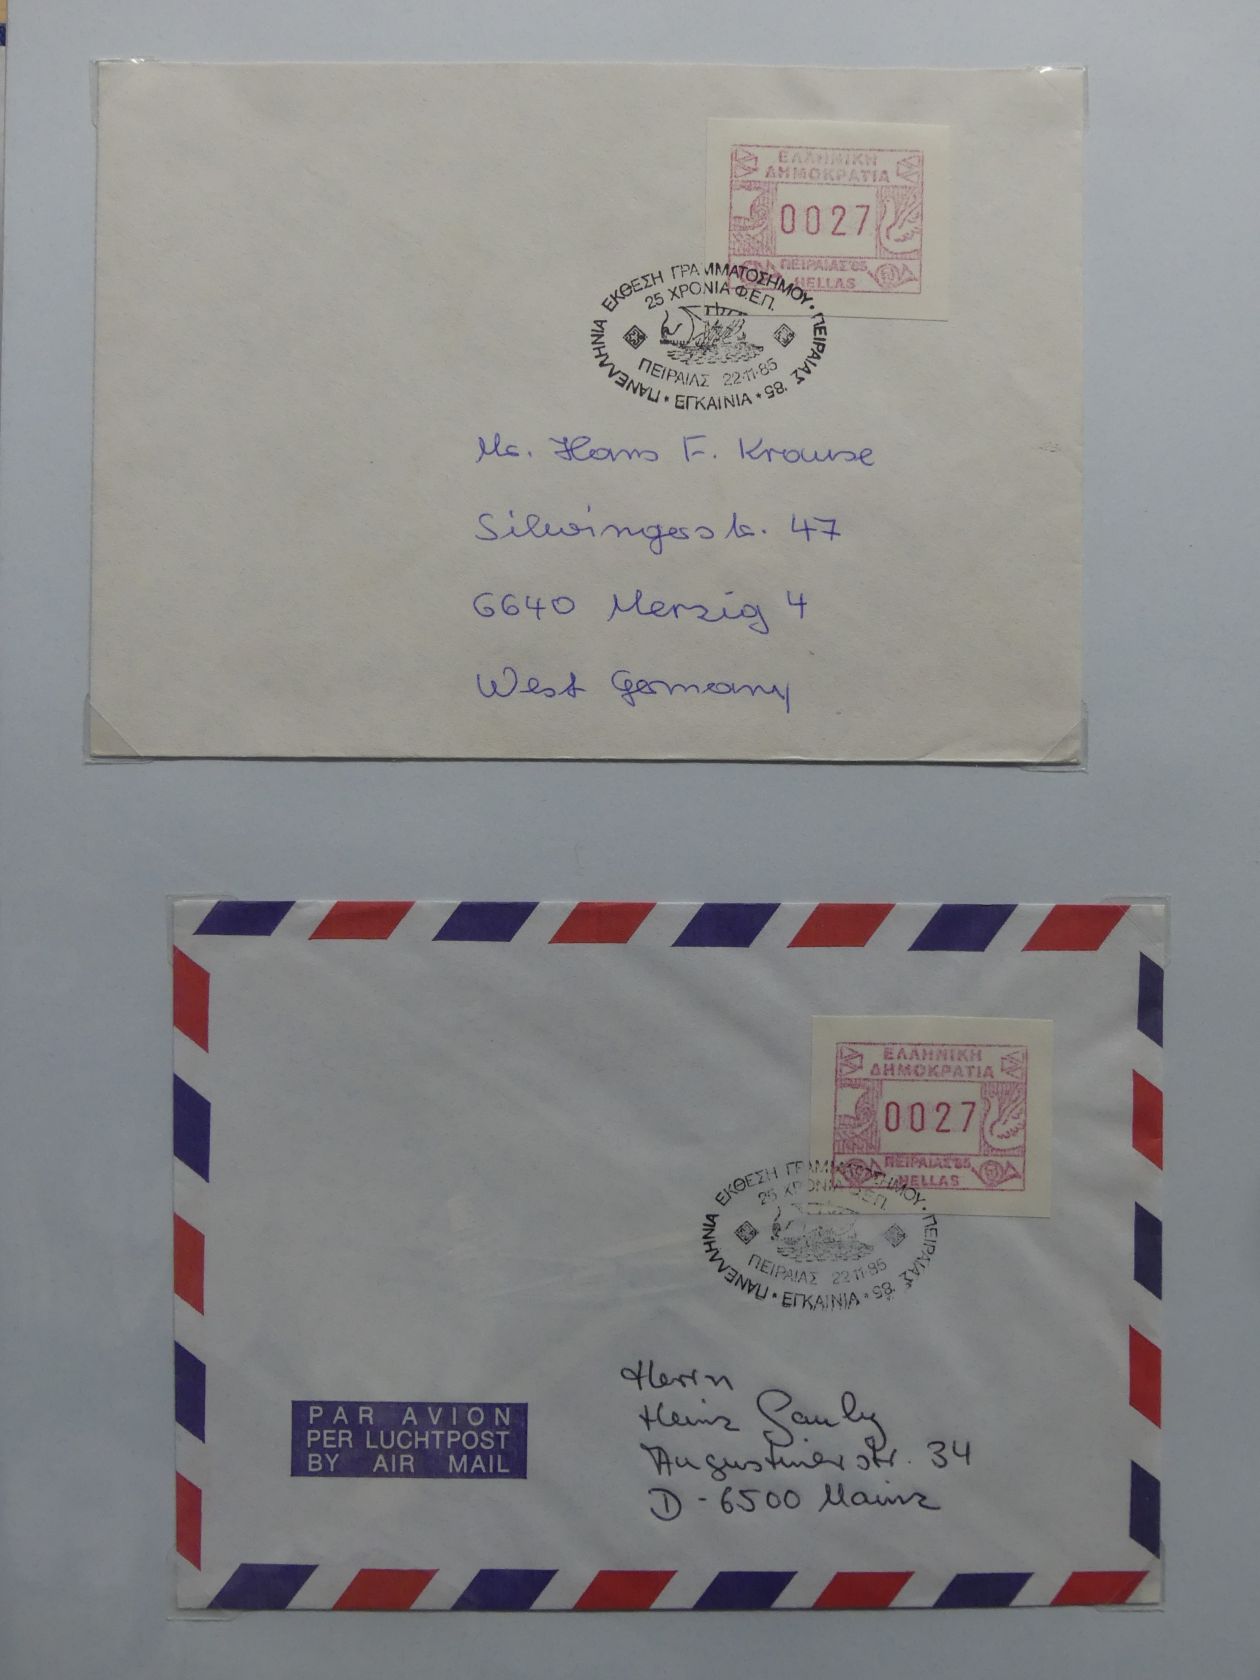 ΕΛΛΗΝΙΚΗ
ΔΗΜΟΚΡΑΤΙΑ
0027
ΠΕΙΡΑΙΑΣ'85
HELLAS
ΠΑΝΕΛΛΗΝΙΑ ΕΚΘΕΣΗ ΓΡΑΜΜΑΤΟΣΗΜΟΥ · ΠΕΙΡΑΙΑΣ '85
25 ΧΡΟΝΙΑ Φ.Ε.Π.
ΠΕΙΡΑΙΑΣ 22·11·85
* ΕΓΚΑΙΝΙΑ *
Mr. Hans F. Krause
Silwingerstr. 47
6640 Merzig 4
West Germany
ΕΛΛΗΝΙΚΗ
ΔΗΜΟΚΡΑΤΙΑ
0027
ΠΕΙΡΑΙΑΣ'85
HELLAS
ΠΑΝΕΛΛΗΝΙΑ ΕΚΘΕΣΗ ΓΡΑΜΜΑΤΟΣΗΜΟΥ · ΠΕΙΡΑΙΑΣ '85
25 ΧΡΟΝΙΑ Φ.Ε.Π.
ΠΕΙΡΑΙΑΣ 22·11·85
* ΕΓΚΑΙΝΙΑ *
PAR AVION
PER LUCHTPOST
BY AIR MAIL
Herrn
Heinz
Augustinerstr. 34
D-6500 Mainz